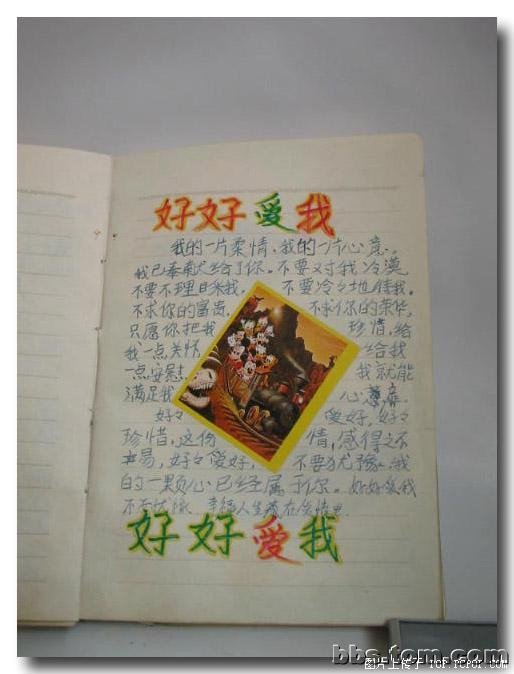 好好爱我
我的一片柔情、我的一片心意。
我已奉献给了你。不要对我冷漠
不要不理睬我. 不要冷冷地待我.
不求你的富贵. 不求你的荣华,
只愿你把我 珍惜,给
我一点关怀 给我
一点安慰. 我就能
满足我 心意.
好々 爱好,好々
珍惜,这份 情,感得之不
易,好々爱好, 不要犹豫.我
的一颗心已经属于你。好好爱我
幸福人生
好好爱我
bbs.tom.com
图片上传于